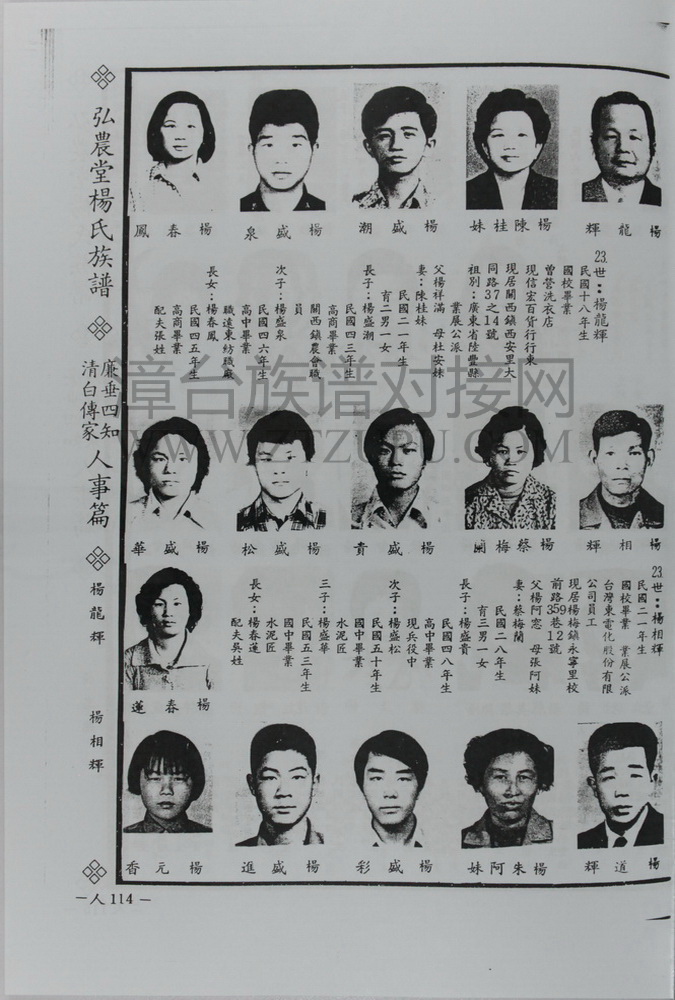 楊龍輝
楊陳桂妹
楊盛潮
楊盛泉
楊春鳳
23.世：楊龍輝
民國十八年生
國校畢業
曾營洗衣店
現信宏百貨行行東
現居關西鎮西安里大
同路37之14號
祖別：廣東省陸豐縣
業展公派
父楊祥滿 母杜安妹
妻：陳桂妹
民國二一年生
育二男一女
長子：楊盛潮
民國四三年生
高商畢業
關西鎮農會職
員
次子：楊盛泉
民國四六年生
高中畢業
職遠東紡職廠
長女：楊春鳳
民國四五年生
高商畢業
配夫張姓
楊相輝
楊蔡梅蘭
楊盛貴
楊盛松
楊盛華
23.世：楊相輝
民國二一年生
國校畢業 業展公派
台灣東電化股份有限
公司員工
現居楊梅鎮永寧里校
前路359巷12號
父楊阿窓 母張阿妹
妻：蔡梅蘭
民國二八年生
育三男一女
長子：楊盛貴
民國四八年生
高中畢業
現兵役中
次子：楊盛松
民國五十年生
國中畢業
水泥匠
三子：楊盛華
民國五三年生
國中畢業
水泥匠
長女：楊春蓮
配夫吳姓
楊春蓮
楊道輝
楊朱阿妹
楊盛彩
楊盛進
楊元香
弘農堂楊氏族譜
廉垂四知
清白傳家
人事篇
楊龍輝
楊相輝
－人114－
漳台族谱对接网
WWW.ZTZUPU.COM